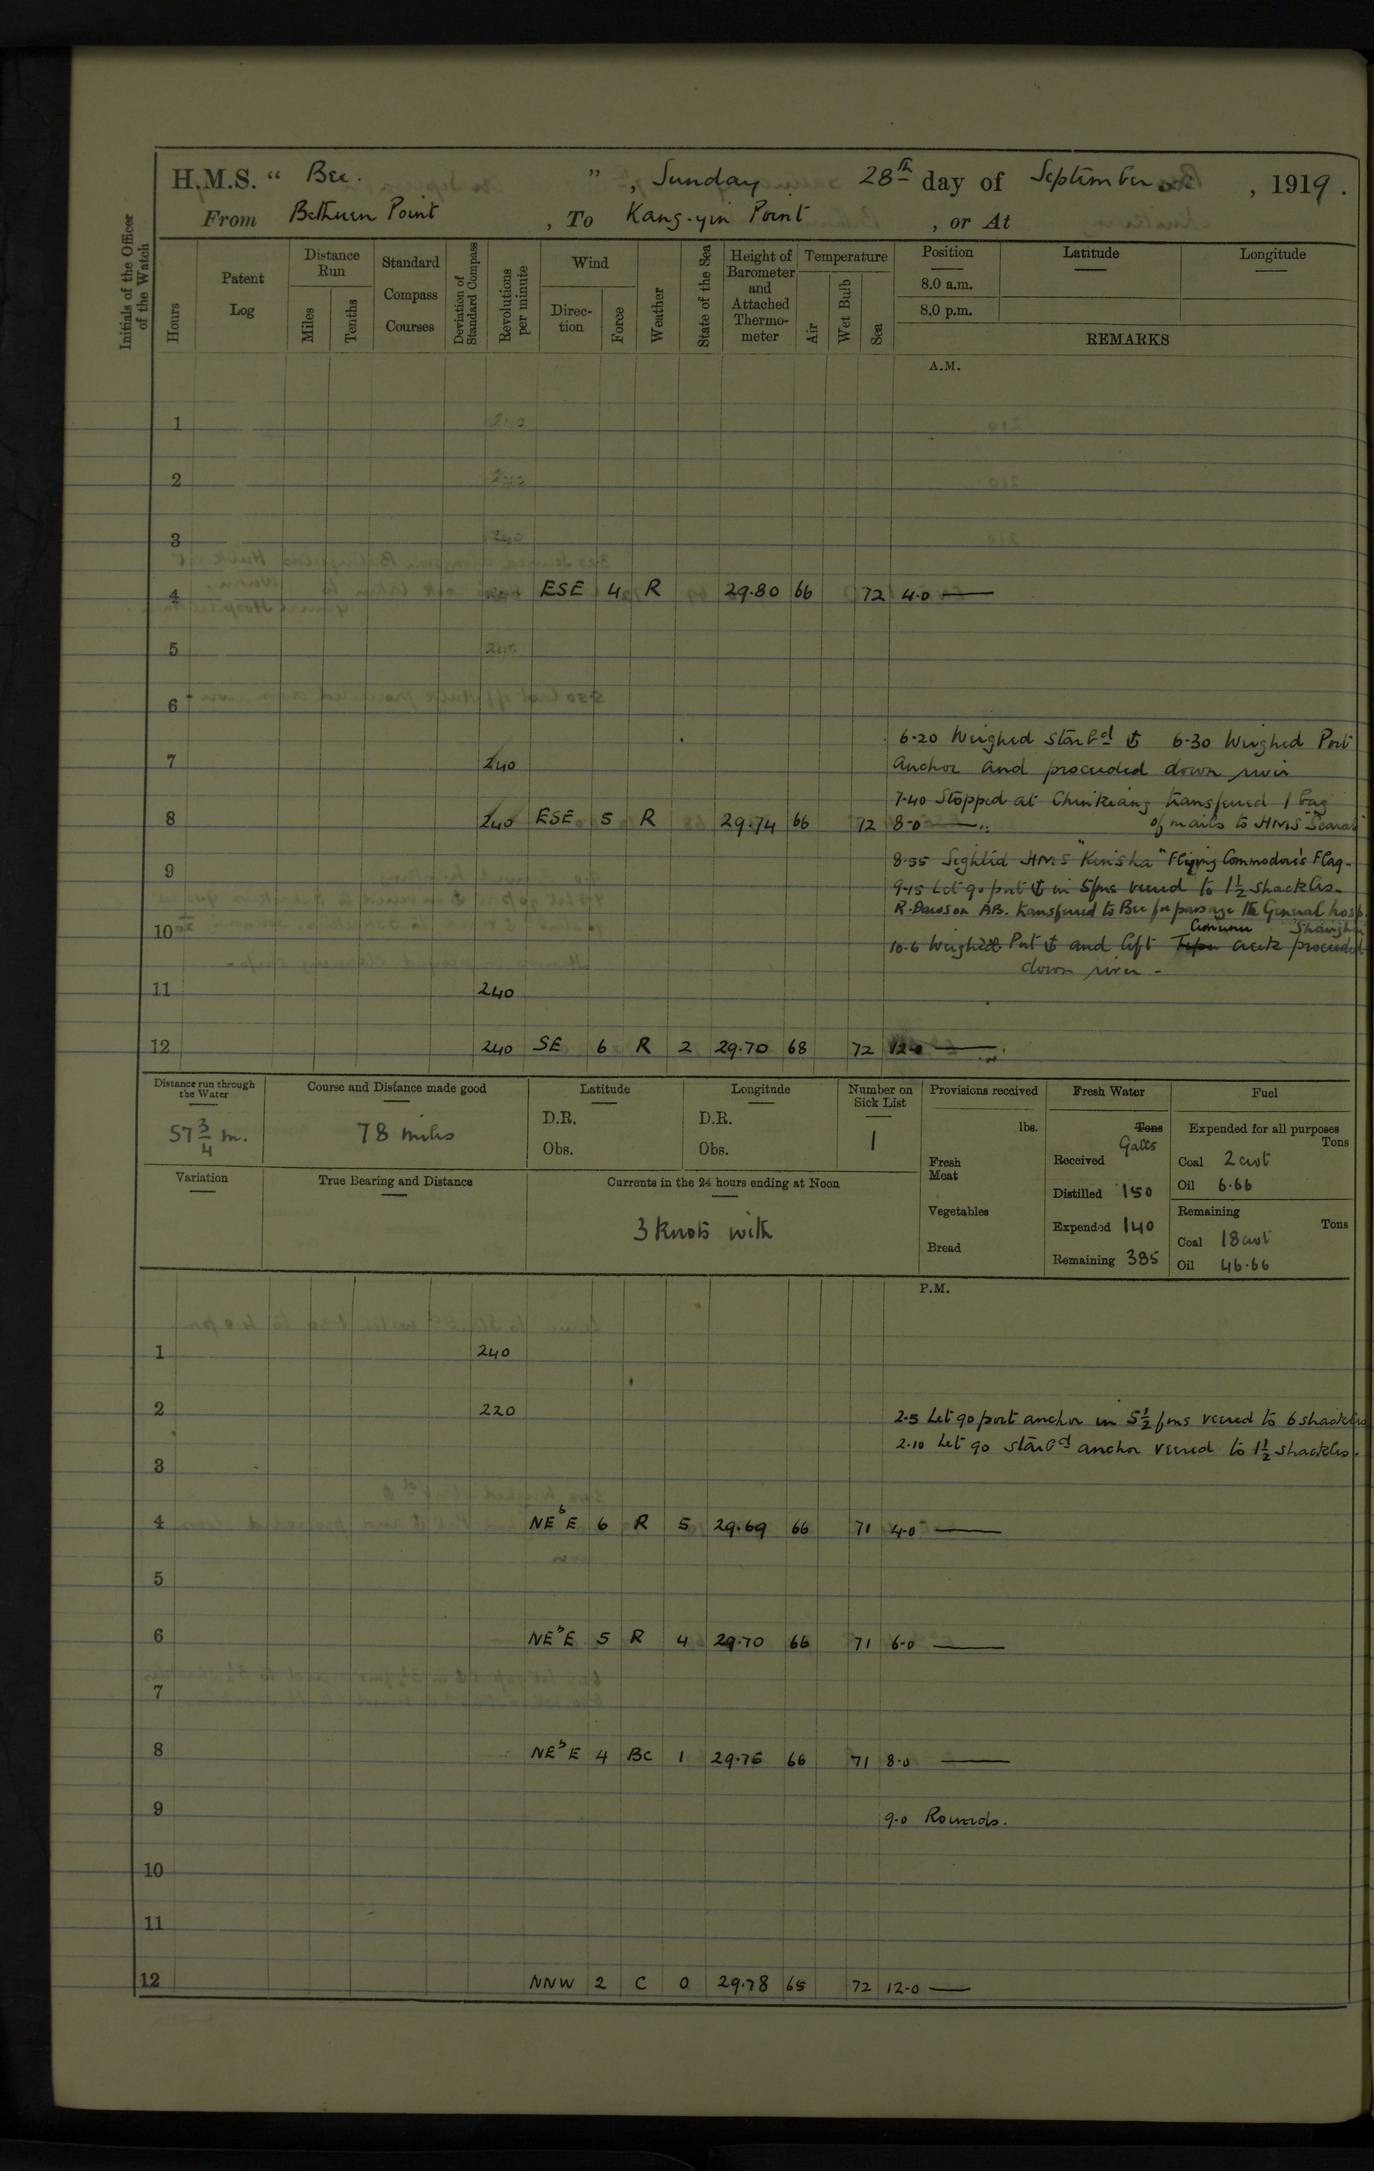 H.M.S. “ Bee. ” , Sunday 28th day of September , 1919 .
From Bethune Point , To Kang-yin Point , or At
Initials of the Officer of the Watch
Hours
Patent Log
Distance Run
Miles
Tenths
Standard Compass Courses
Deviation of Standard Compass
Revolutions per minute
Wind
Direction
Force
Weather
State of the Sea
Height of Barometer and Attached Thermometer
Temperature
Air
Wet Bulb
Sea
Position
8.0 a.m.
8.0 p.m.
Latitude
Longitude
REMARKS
A.M.
1
2
3
4 ESE 4 R 29.80 66 72 4.0 —
5
6
6-20 Weighed Starbd ⚓ 6-30 Weighed Port
7 240 Anchor and proceeded down river
7-40 Stopped at Chinkiang transferred 1 bag
of mails to HMS "Scarab"
8 240 ESE 5 R 29.74 66 72 8-0 —
8-55 Sighted HMS "Kinsha" Flying Commodore's Flag.
9 9-15 Let go port ⚓ in 5 fms veered to 1½ shackles.
R. Dawson AB. transferred to Bee for passage to General hosp.
Shanghai
10 10-6 Weighed Port ⚓ and left creek proceeded
down river -
11 240
12 240 SE 6 R 2 29.70 68 72 12-0 —
Distance run through the Water
57 3/4 m.
Course and Distance made good
78 miles
Latitude
D.R.
Obs.
Longitude
D.R.
Obs.
Number on Sick List
1
Provisions received
lbs.
Fresh Meat
Vegetables
Bread
Fresh Water
Tons
Galls
Received
Distilled 150
Expended 140
Remaining 385
Fuel
Expended for all purposes
Tons
Coal 2 cwt
Oil 6.66
Remaining
Tons
Coal 18 cwt
Oil 46.66
Variation
True Bearing and Distance
Currents in the 24 hours ending at Noon
3 Knots with
P.M.
1 240
2 220 2-5 Let go port anchor in 5½ fms veered to 6 shackles
2-10 Let go Starbd anchor veered to 1½ shackles.
3
4 NEbE 6 R 5 29.69 66 71 4-0 —
5
6 NEbE 5 R 4 29.70 66 71 6-0 —
7
8 NEbE 4 BC 1 29.76 66 71 8-0 —
9 9-0 Rounds.
10
11
12 NNW 2 C 0 29.78 65 72 12-0 —